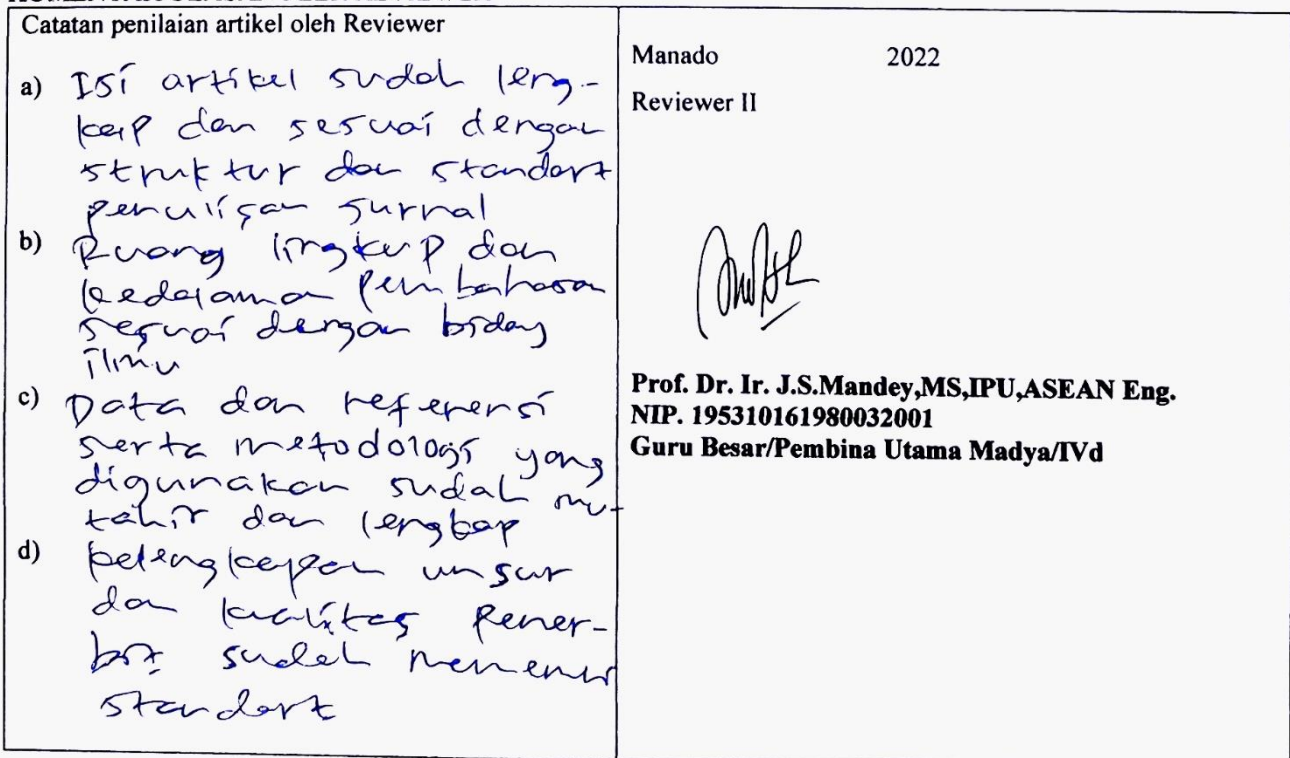 Catatan penilaian artikel oleh Reviewer
a) Isi artikel sudah leng-
kap dan sesuai dengan
struktur dan standart
penulisan jurnal
b) Ruang lingkup dan
kedalaman pembahasan
sesuai dengan bidang
ilmu
c) Data dan referensi
serta metodologi yang
digunakan sudah mu-
tahir dan lengkap
d) kelengkapan unsur
dan kualitas Pener-
bit sudah memenuhi
standart
Manado 2022
Reviewer II
Prof. Dr. Ir. J.S.Mandey,MS,IPU,ASEAN Eng.
NIP. 195310161980032001
Guru Besar/Pembina Utama Madya/IVd